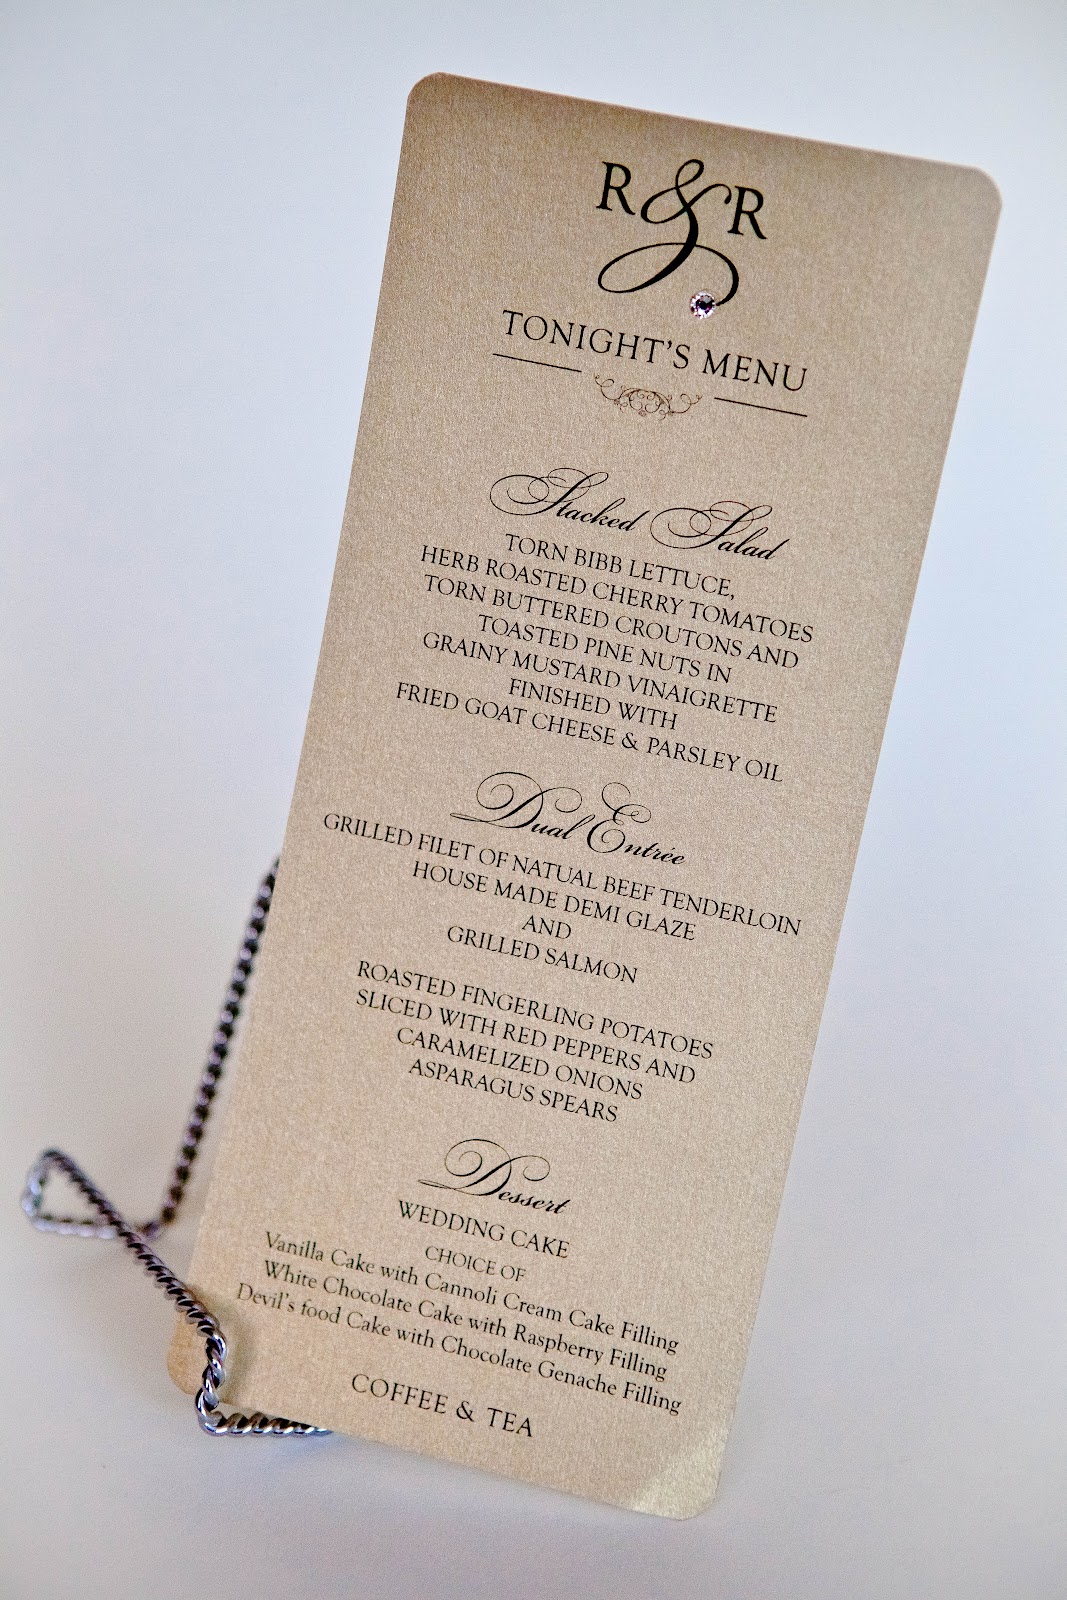 R & R
TONIGHT'S MENU
Stacked Salad
TORN BIBB LETTUCE,
HERB ROASTED CHERRY TOMATOES
TORN BUTTERED CROUTONS AND
TOASTED PINE NUTS IN
GRAINY MUSTARD VINAIGRETTE
FINISHED WITH
FRIED GOAT CHEESE & PARSLEY OIL
Dual Entrée
GRILLED FILET OF NATUAL BEEF TENDERLOIN
HOUSE MADE DEMI GLAZE
AND
GRILLED SALMON
ROASTED FINGERLING POTATOES
SLICED WITH RED PEPPERS AND
CARAMELIZED ONIONS
ASPARAGUS SPEARS
Dessert
WEDDING CAKE
CHOICE OF
Vanilla Cake with Cannoli Cream Cake Filling
White Chocolate Cake with Raspberry Filling
Devil's food Cake with Chocolate Genache Filling
COFFEE & TEA